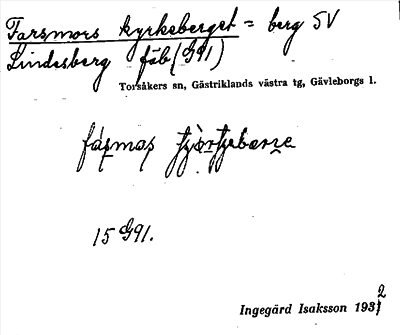 Farsmors kyrkeberget = berg SV
Lindesberg fäb (G91)
Torsåkers sn, Gästriklands västra tg, Gävleborgs l.
15 G91.
Ingegärd Isaksson 1932